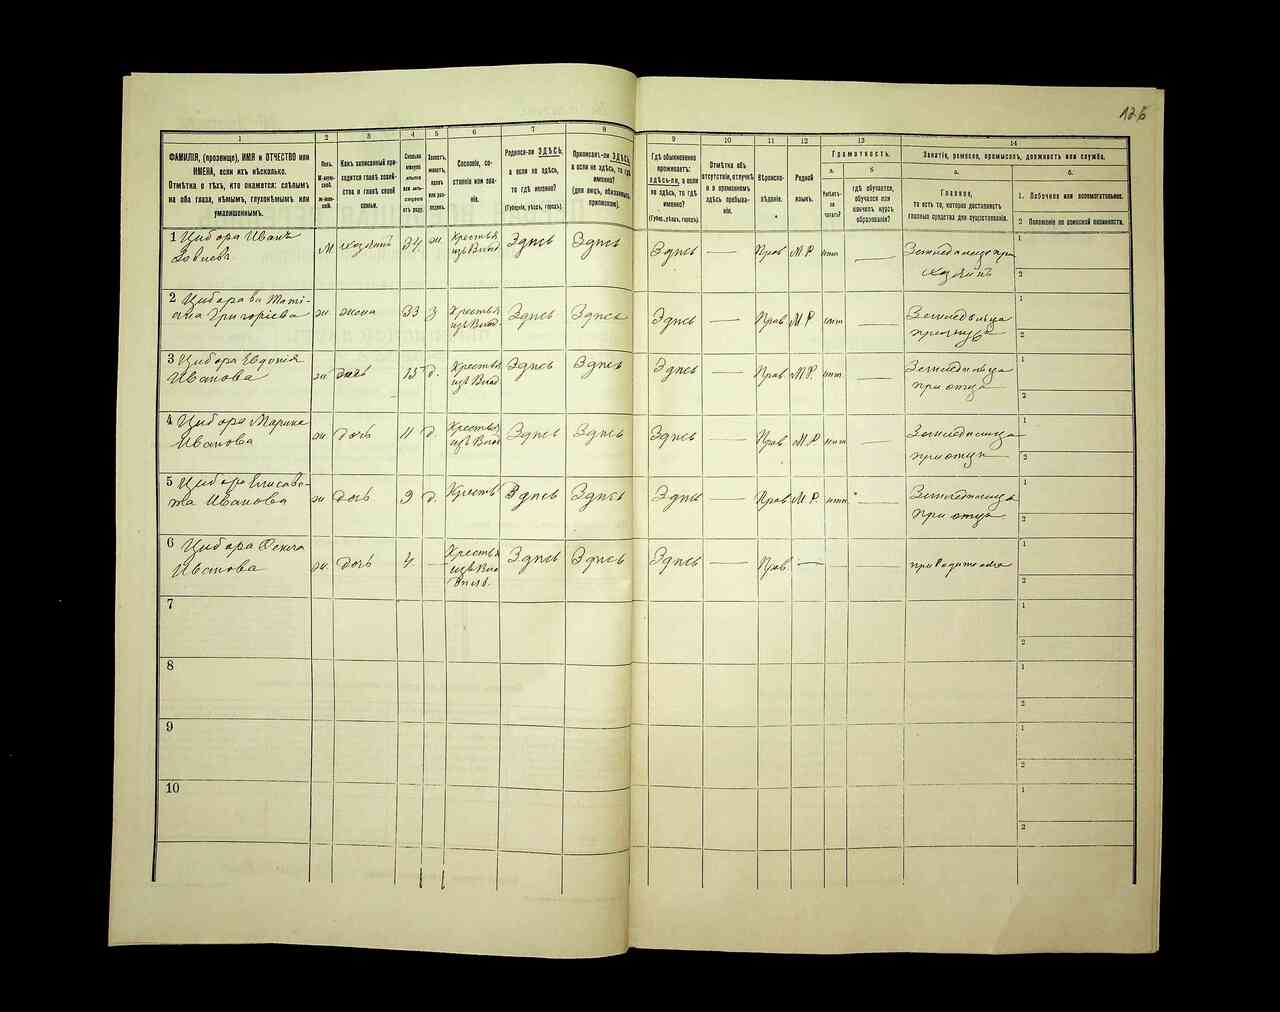 126
1 2 3 4 5 6 7 8 9 10 11 12 13 14
ФАМИЛІЯ, (прозвище), ИМЯ и ОТЧЕСТВО или
ИМЕНА, если ихъ нѣсколько.
Отмѣтка о тѣхъ, кто окажется: слѣпымъ
на оба глаза, нѣмымъ, глухонѣмымъ или
умалишеннымъ.
Полъ.
М-мужской.
Ж-женскій.
Какъ записанный приходится главѣ хозяйства и главѣ своей
семьи.
Сколько
минуло
лѣтъ
Холостъ,
женатъ,
вдовъ
или разведенъ.
Сословіе, состояніе или званіе.
Родился-ли ЗДѢСЬ,
а если не здѣсь,
то гдѣ именно?
(Губернія, уѣздъ, городъ).
Приписанъ-ли ЗДѢСЬ,
а если не здѣсь, то гдѣ
именно?
(для лицъ, обязанныхъ
припиской).
Гдѣ обыкновенно
проживаетъ:
здѣсь-ли, а если
не здѣсь, то гдѣ
именно?
(Губер., уѣздъ, городъ).
Отмѣтка объ
отсутствіи, отлучкѣ
и о временномъ
здѣсь пребываніи.
Вѣроисповѣданіе.
Родной
языкъ.
Грамотность.
а. б.
Умѣетъ-ли
читать?
гдѣ обучается,
обучался или
кончилъ курсъ
образованія?
Занятіе, ремесло, промыселъ, должность или служба.
а. б.
Главное,
то есть то, которое доставляетъ
главныя средства для существованія.
1. Побочное или вспомогательное.
2 Положеніе по воинской повинности.
1 Цибора Иванъ
М хозяинъ 34 ж Крестья изъ Влад Здѣсь Здѣсь Здѣсь — Прав М.Р. — хозяинъ
2 Цибора ва Тати-
яна Григоріева ж жена 33 з Крестья изъ Влад Здѣсь Здѣсь Здѣсь — Прав М.Р. —
3 Цибора Евдокія
Иванова ж дочь 15 д. Крестья изъ Влад Здѣсь Здѣсь Здѣсь — Прав М.Р. — при отцѣ
4 Цибора Марина
Иванова ж дочь 11 д. Крестья изъ Влад Здѣсь Здѣсь Здѣсь — Прав М.Р. — при отцѣ
5 Цибора Елисаве-
та Иванова ж дочь 9 д. Крестья Здѣсь Здѣсь Здѣсь — Прав М.Р. — при отцѣ
6 Цибора
Иванова ж дочь 4 — Крестья изъ Вла Здѣсь Здѣсь Здѣсь — Прав — — —
7
8
9
10